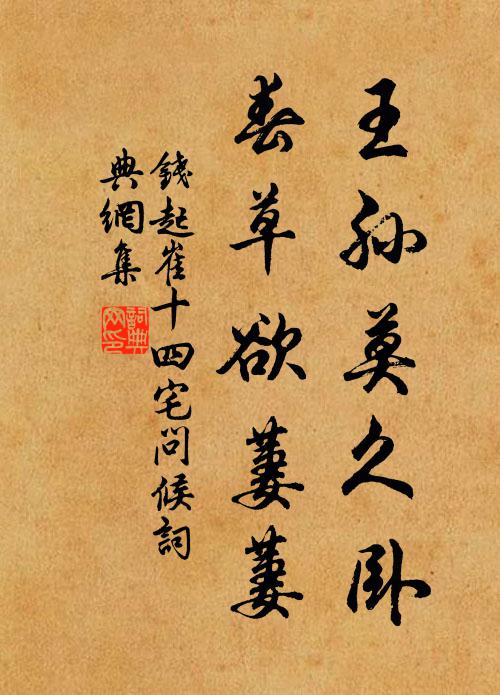 王孙莫久卧
春草欲萋萋
錢起崔十四宅問候詞
典網集
詞典网印